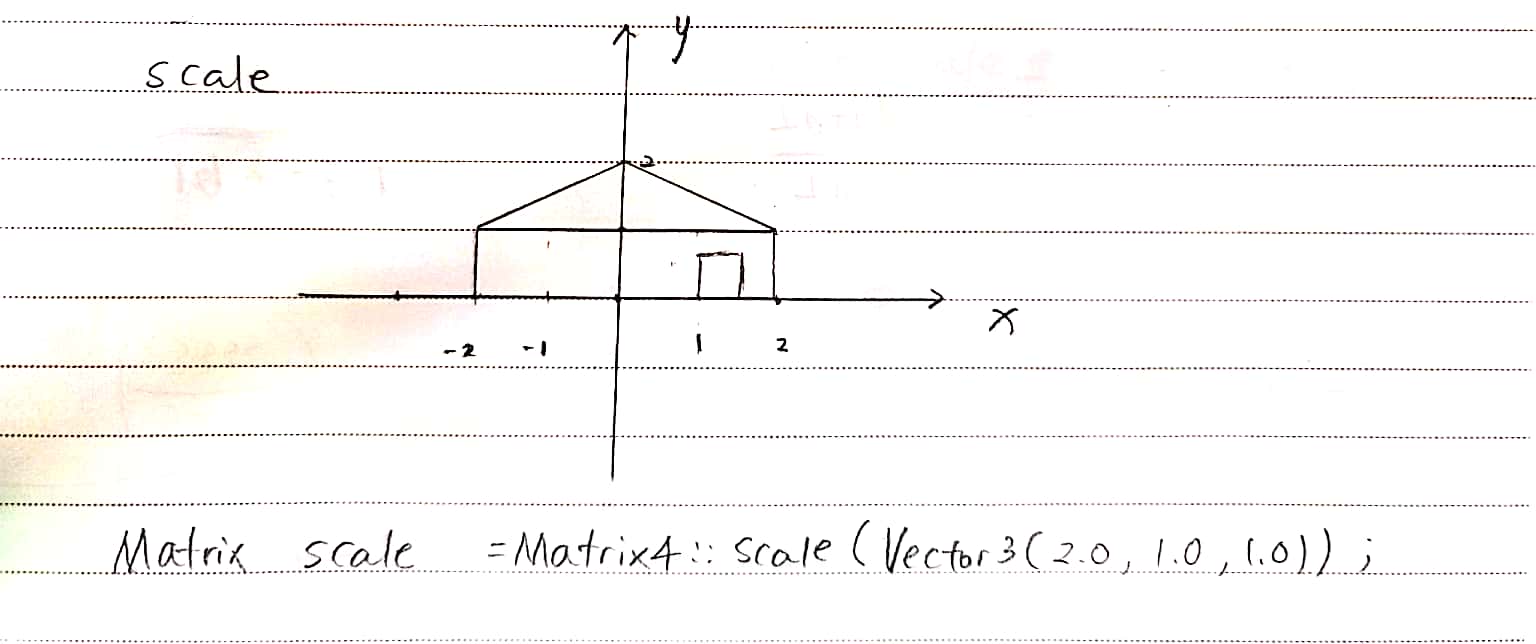 y
scale
2
x
-2 -1 1 2
Matrix scale = Matrix4:: scale (Vector3(2.0, 1.0, 1.0));